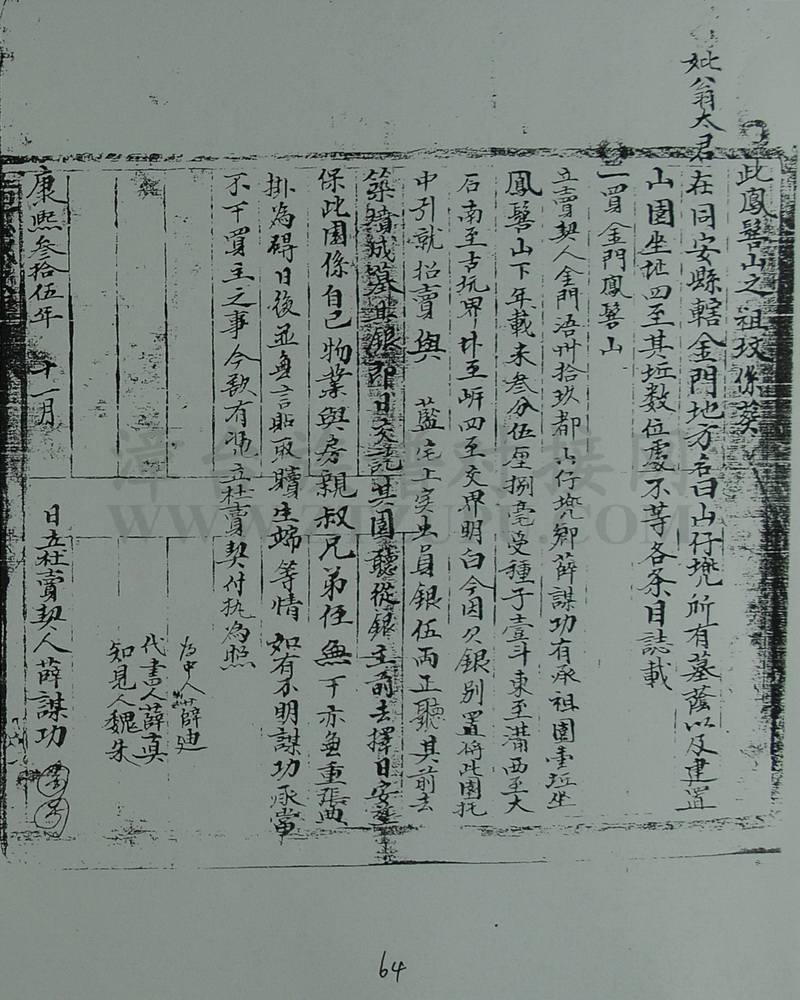 此鳳髻山之祖坟係葬
妣翁太君在同安縣轄金門地方名曰山仔墘所有墓蔭以及建置
山園坐址四至其坵数位處不等各条目誌載
一買金門鳳髻山
立賣契人金門浯州拾玖都山仔墘鄉薛謀功有承祖園壹坵坐
鳳髻山下年載米叁分伍厘捌毫受種子壹斗東至溝西至大
石南至古坑界北至岍四至交界明白今因欠銀別置將此園托
中引就招賣與 藍宅上突出員銀伍両正聽其前去
築墳城葬其銀即日交訖其園聽從銀主前去擇日安葬
保此園係自己物業與房親叔兄弟侄無干亦無重張典
掛為碍日後並無言貼取贖生端等情如有不明謀功承當
不干買主之事今欲有憑立杜賣契付执為照
為中人薛廸
代書人薛奠
知見人魏朱
康熙叁拾伍年 十一月 日立杜賣契人薛謀功
64